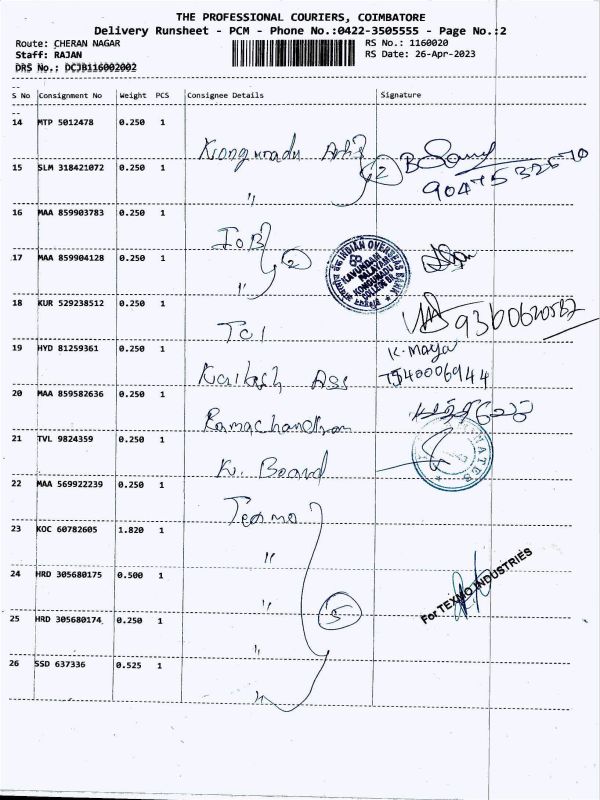 THE PROFESSIONAL COURIERS, COIMBATORE
Delivery Runsheet - PCM - Phone No.:0422-3505555 - Page No.:2
Route: CHERAN NAGAR RS No.: 1160020
Staff: RAJAN RS Date: 26-Apr-2023
DRS No.: DCJB116002002
S No Consignment No Weight PCS Consignee Details Signature
14 MTP 5012478 0.250 1
Kongunadu
15 SLM 318421072 0.250 1 2
"
16 MAA 859903783 0.250 1
IOB
17 MAA 859904128 0.250 1 2
"
INDIAN OVERSEAS BANK
KAVUNDAM PALAYAM
KONGUNADU
COLLEGE
18 KUR 529238512 0.250 1
TCI
19 HYD 81259361 0.250 1
K. Maya
Kailash Ass
20 MAA 859582636 0.250 1
Ramachandran
21 TVL 9824359 0.250 1
K. Board
22 MAA 569922239 0.250 1
Texmo
23 KOC 60782605 1.820 1
"
24 HRD 305680175 0.500 1
" 5
For TEXMO INDUSTRIES
25 HRD 305680174 0.250 1
"
26 SSD 637336 0.525 1
"